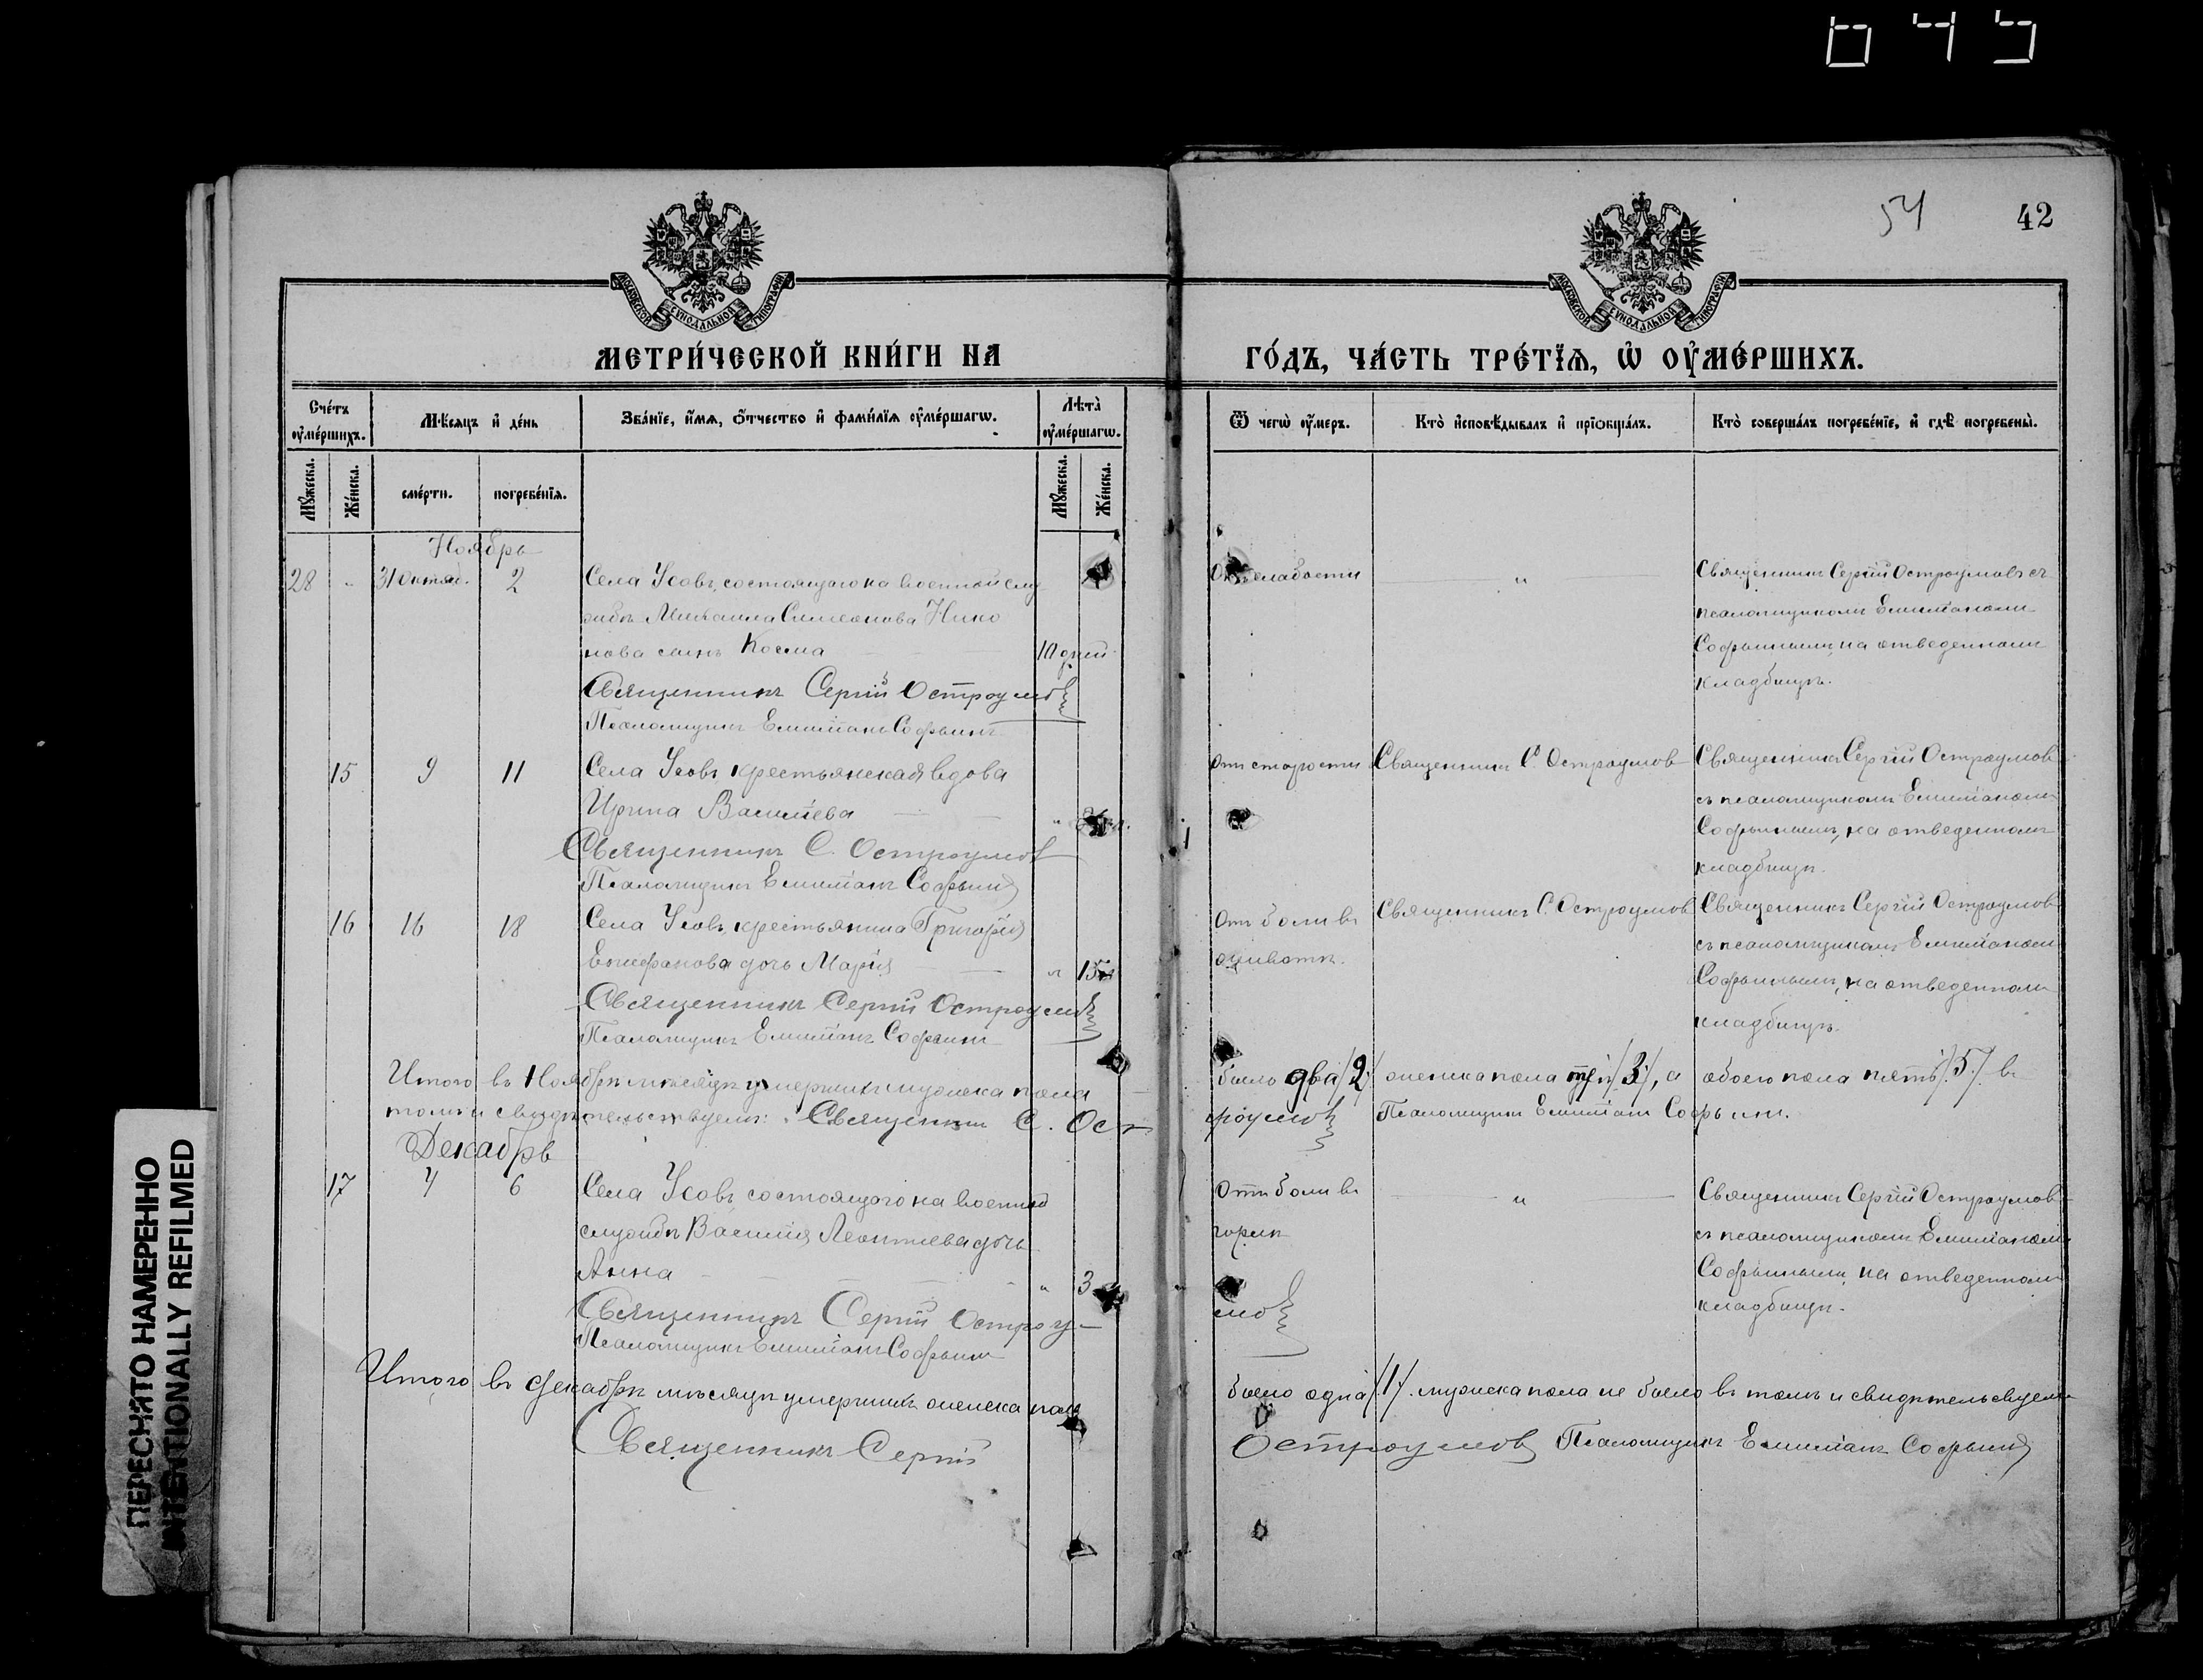 045
54
42
МОСКОВСКОЙ СѴНОДАЛЬНОЙ ТИПОГРАФІИ
МОСКОВСКОЙ СѴНОДАЛЬНОЙ ТИПОГРАФІИ
МЕТРИ́ЧЕСКОЙ КНИ́ГИ НА
ГО́ДЪ, ЧА́СТЬ ТРЕ́ТЇѦ, Ѡ҆ ОУ҆МЕ́РШИХЪ.
Сче́тъ оу҆ме́ршихъ.
Мѣ́сяцъ и҆ де́нь
Зва́нїе, и҆́мѧ, ѻ҆́тчество и҆ фами́лїѧ оу҆ме́ршагѡ.
Лѣ́та оу҆ме́ршагѡ.
Ѿ чегѡ̀ оу҆́меръ.
Кто̀ и҆сповѣ́дывалъ и҆ прїѻбща́лъ.
Кто̀ соверша́лъ погребе́нїе, и҆ гдѣ̀ погребены̀.
Мꙋ́жеска.
Же́нска.
сме́рти.
погребе́нїѧ.
Мꙋ́жеска.
Же́нска.
Ноябрь
28 " 31 Октяб. 2 Села Усовъ, состоящаго на военной слу
жбѣ Михаила Симеонова Нико
нова сынъ Косма 10 дней
Священникъ Сергій Остроумовъ
Псаломщикъ Емиліанъ Софьинъ
Отъ слабости
"
Священникъ Сергій Остроумовъ съ
псаломщикомъ Емиліаномъ
Софьинымъ, на отведенномъ
кладбищѣ.
15 9 11 Села Усовъ крестьянская вдова
Ирина Василіева "
Священникъ С. Остроумовъ
Псаломщикъ Емиліанъ Софьинъ
Отъ старости
Священникъ С. Остроумовъ
Священникъ Сергій Остроумовъ
съ псаломщикомъ Емиліаномъ
Софьинымъ, на отведенномъ
кладбищѣ.
16 16 18 Села Усовъ, крестьянина Григорія
Епифанова дочь Марія " 15
Священникъ Сергій Остроумовъ
Псаломщикъ Емиліанъ Софьинъ
Отъ боли въ
животѣ.
Священникъ С. Остроумовъ
Священникъ Сергій Остроумовъ
съ псаломщикомъ Емиліаномъ
Софьинымъ, на отведенномъ
кладбищѣ.
Итого въ Ноябрѣ мѣсяцѣ умершихъ мужеска пола было два /2/ женска пола три /3/, а обоего пола пять /5/. въ
томъ и свидѣтельствуемъ: Священникъ С. Остроумовъ Псаломщикъ Емиліанъ Софьинъ.
Декабрь
17 4 6 Села Усовъ состоящаго на военной
службѣ Василія Леонтіева дочь
Анна " 3
Священникъ Сергій Остроумовъ
Псаломщикъ Емиліанъ Софьинъ
Отъ боли въ
горлѣ
"
Священникъ Сергій Остроумовъ
съ псаломщикомъ Емиліаномъ
Софьинымъ, на отведенномъ
кладбищѣ.
Итого въ декабрѣ мѣсяцѣ умершихъ женска пола было одна /1/. мужеска пола не было въ томъ и свидѣтельствуемъ
Священникъ Сергій Остроумовъ Псаломщикъ Емиліанъ Софьинъ
ПЕРЕСНЯТО НАМЕРЕННО
INTENTIONALLY REFILMED